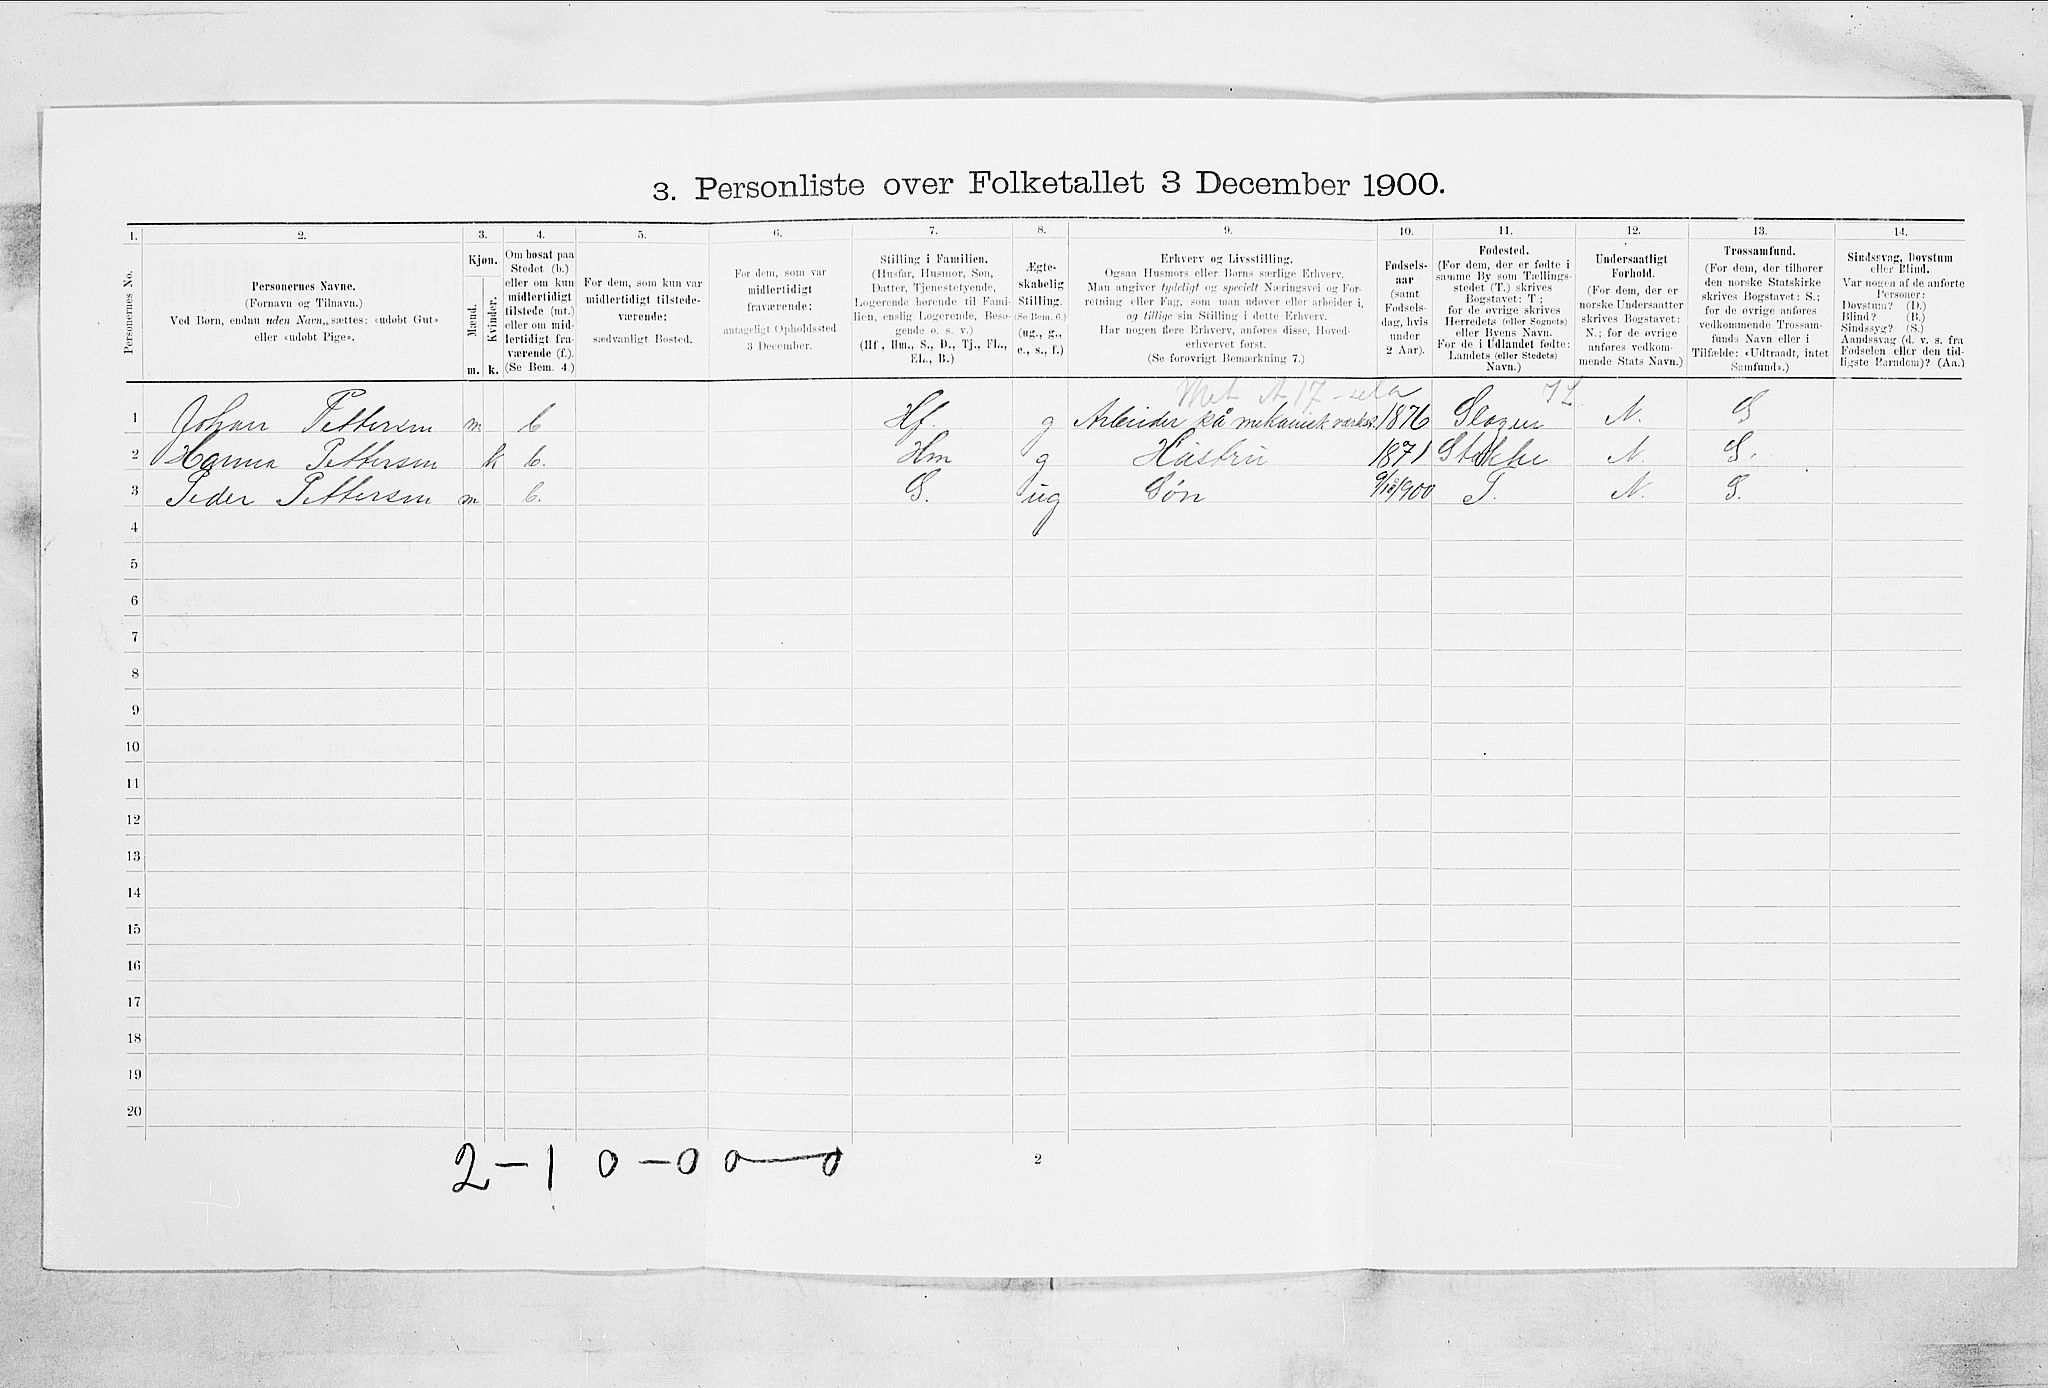 3. Personliste over Folketallet 3 December 1900.
1. 2. 3. 4. 5. 6. 7. 8. 9. 10. 11. 12. 13. 14.
Personernes No.
Personernes Navne.
(Fornavn og Tilnavn.)
Ved Børn, endnu uden Navn, sættes: «udøbt Gut»
eller «udøbt Pige».
Kjøn.
Mænd.
Kvinder.
m. k.
Om bosat paa
Stedet (b.)
eller om kun
midlertidigt
tilstede (mt.)
eller om mid-
lertidigt fra-
værende (f.).
(Se Bem. 4.)
For dem, som kun var
midlertidigt tilstede-
værende:
sædvanligt Bosted.
For dem, som var
midlertidigt
fraværende:
antageligt Opholdssted
3 December.
Stilling i Familien.
(Husfar, Husmor, Søn,
Datter, Tjenestetyende,
Logerende hørende til Fami-
lien, enslig Logerende, Besø-
gende o. s. v.)
(Hf., Hm., S., D., Tj., FL.,
EL., B.)
Ægte-
skabelig
Stilling.
(Se Bem. 6.)
(ug., g.,
e., s., f.)
Erhverv og Livsstilling.
Ogsaa Husmors eller Børns særlige Erhverv.
Man angiver tydeligt og specielt Næringsvei og For-
retning eller Fag, som man udøver eller arbeider i,
og tillige sin Stilling i dette Erhverv.
Har nogen flere Erhverv, anføres disse, Hoved-
erhvervet først.
(Se forøvrigt Bemærkning 7.)
Fødsels-
aar
(samt
Fødsels-
dag, hvis
under
2 Aar).
Fødested.
(For dem, der er fødte i
samme By som Tællings-
stedet (T.) skrives
Bogstavet: T.;
for de øvrige skrives
Herredets (eller Sognets)
eller Byens Navn.
For de i Udlandet fødte:
Landets (eller Stedets)
Navn.)
Undersaatligt
Forhold.
(For dem, der er
norske Undersaatter
skrives Bogstavet:
N.; for de øvrige
anføres vedkom-
mende Stats Navn.)
Trossamfund.
(For dem, der tilhører
den norske Statskirke
skrives Bogstavet: S.;
for de øvrige anføres
vedkommende Trossam-
funds Navn eller i
Tilfælde: «Udtraadt, intet
Samfund».)
Sindssvag, Døvstum
eller Blind.
Var nogen af de anførte
Personer:
Døvstum? (D.)
Blind? (B.)
Sindssyg? (S.)
Aandssvag (d. v. s. fra
Fødselen eller den tid-
ligste Barndom)? (Aa.)
1 Johan Pettersen m b Hf. g Arbeider på mekanisk værkst. 1876 Slagen N. S
2 Hanna Pettersen k b. Hm g Hustru 1871 Stokke N. S.
3 Peder Pettersen m b. S. ug Søn 9/10 1900 T. N. S.
4
5
6
7
8
9
10
11
12
13
14
15
16
17
18
19
20
2 – 1 0 – 0 0 – 0
2